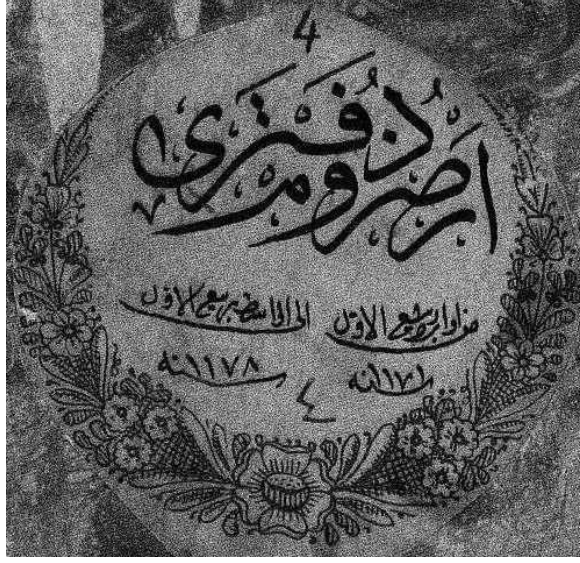 4
ارضروم دفترى
من ربيع الاول الى ربيع الاول
سنه ١١٧١ سنه ١١٧٨
٤